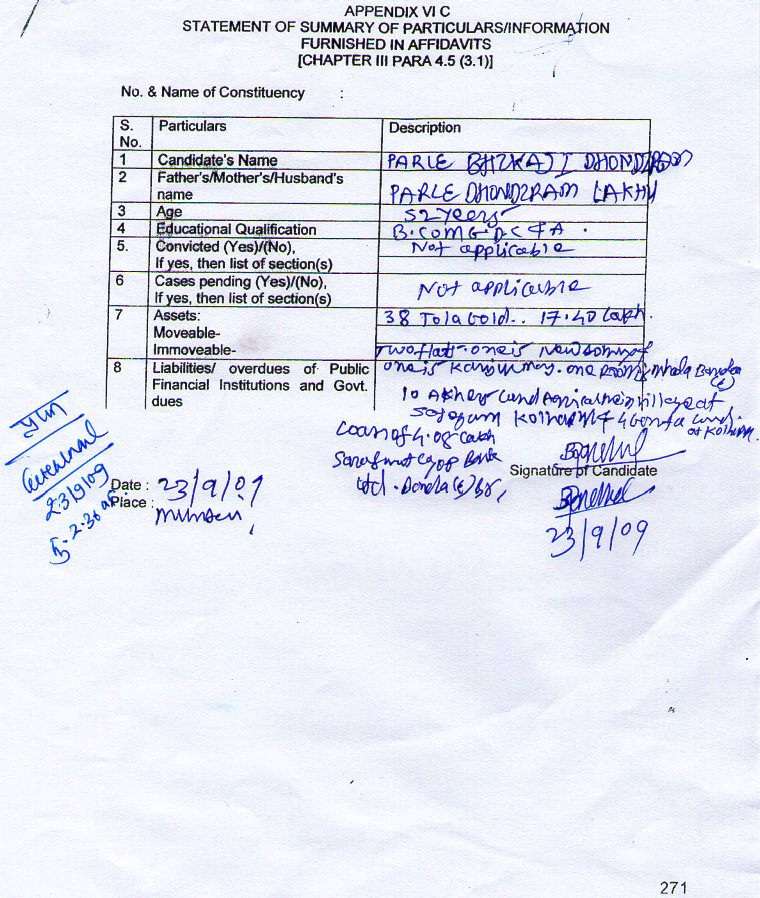 APPENDIX VI C
STATEMENT OF SUMMARY OF PARTICULARS/INFORMATION
FURNISHED IN AFFIDAVITS
[CHAPTER III PARA 4.5 (3.1)]
No. & Name of Constituency :
S. No. Particulars Description
1 Candidate's Name PARLE BHIKAJI DHONDIRAM
2 Father's/Mother's/Husband's
name PARLE DHONDIRAM LAKHU
3 Age 52 years
4 Educational Qualification B.COM G.D.C & A.
5. Convicted (Yes)/(No), Not applicable
If yes, then list of section(s)
6 Cases pending (Yes)/(No), Not applicable
If yes, then list of section(s)
7 Assets: 38 Tola Gold.. 17.40 Lakh.
Moveable-
Immoveable- Two flat - one is
8 Liabilities/ overdues of Public one is one Room Mhada Bandra (E)
Financial Institutions and Govt.
dues 10 Land village at
Land at
Loan of 4.08 Lakh
Bank
Ltd. Bandra (E)
Signature of Candidate
Date : 23/9/09
Place : Mumbai
23/9/09
23/9/09
271